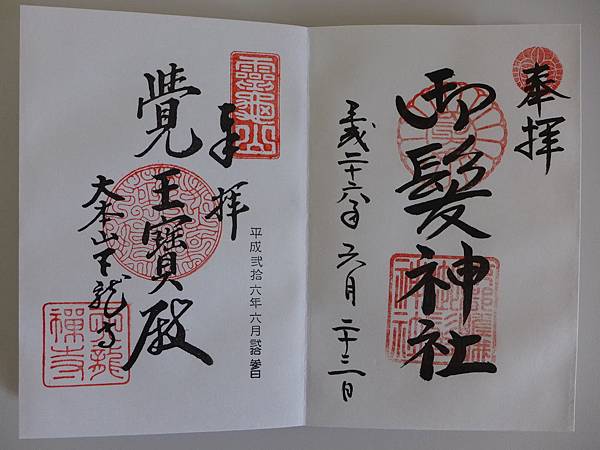 奉拝
御髪神社
平成二十六年六月二十三日
奉拝
靈龜山
平成弐拾六年六月弐拾参日
覺王寶殿
大本山天龍寺
天龍禪寺